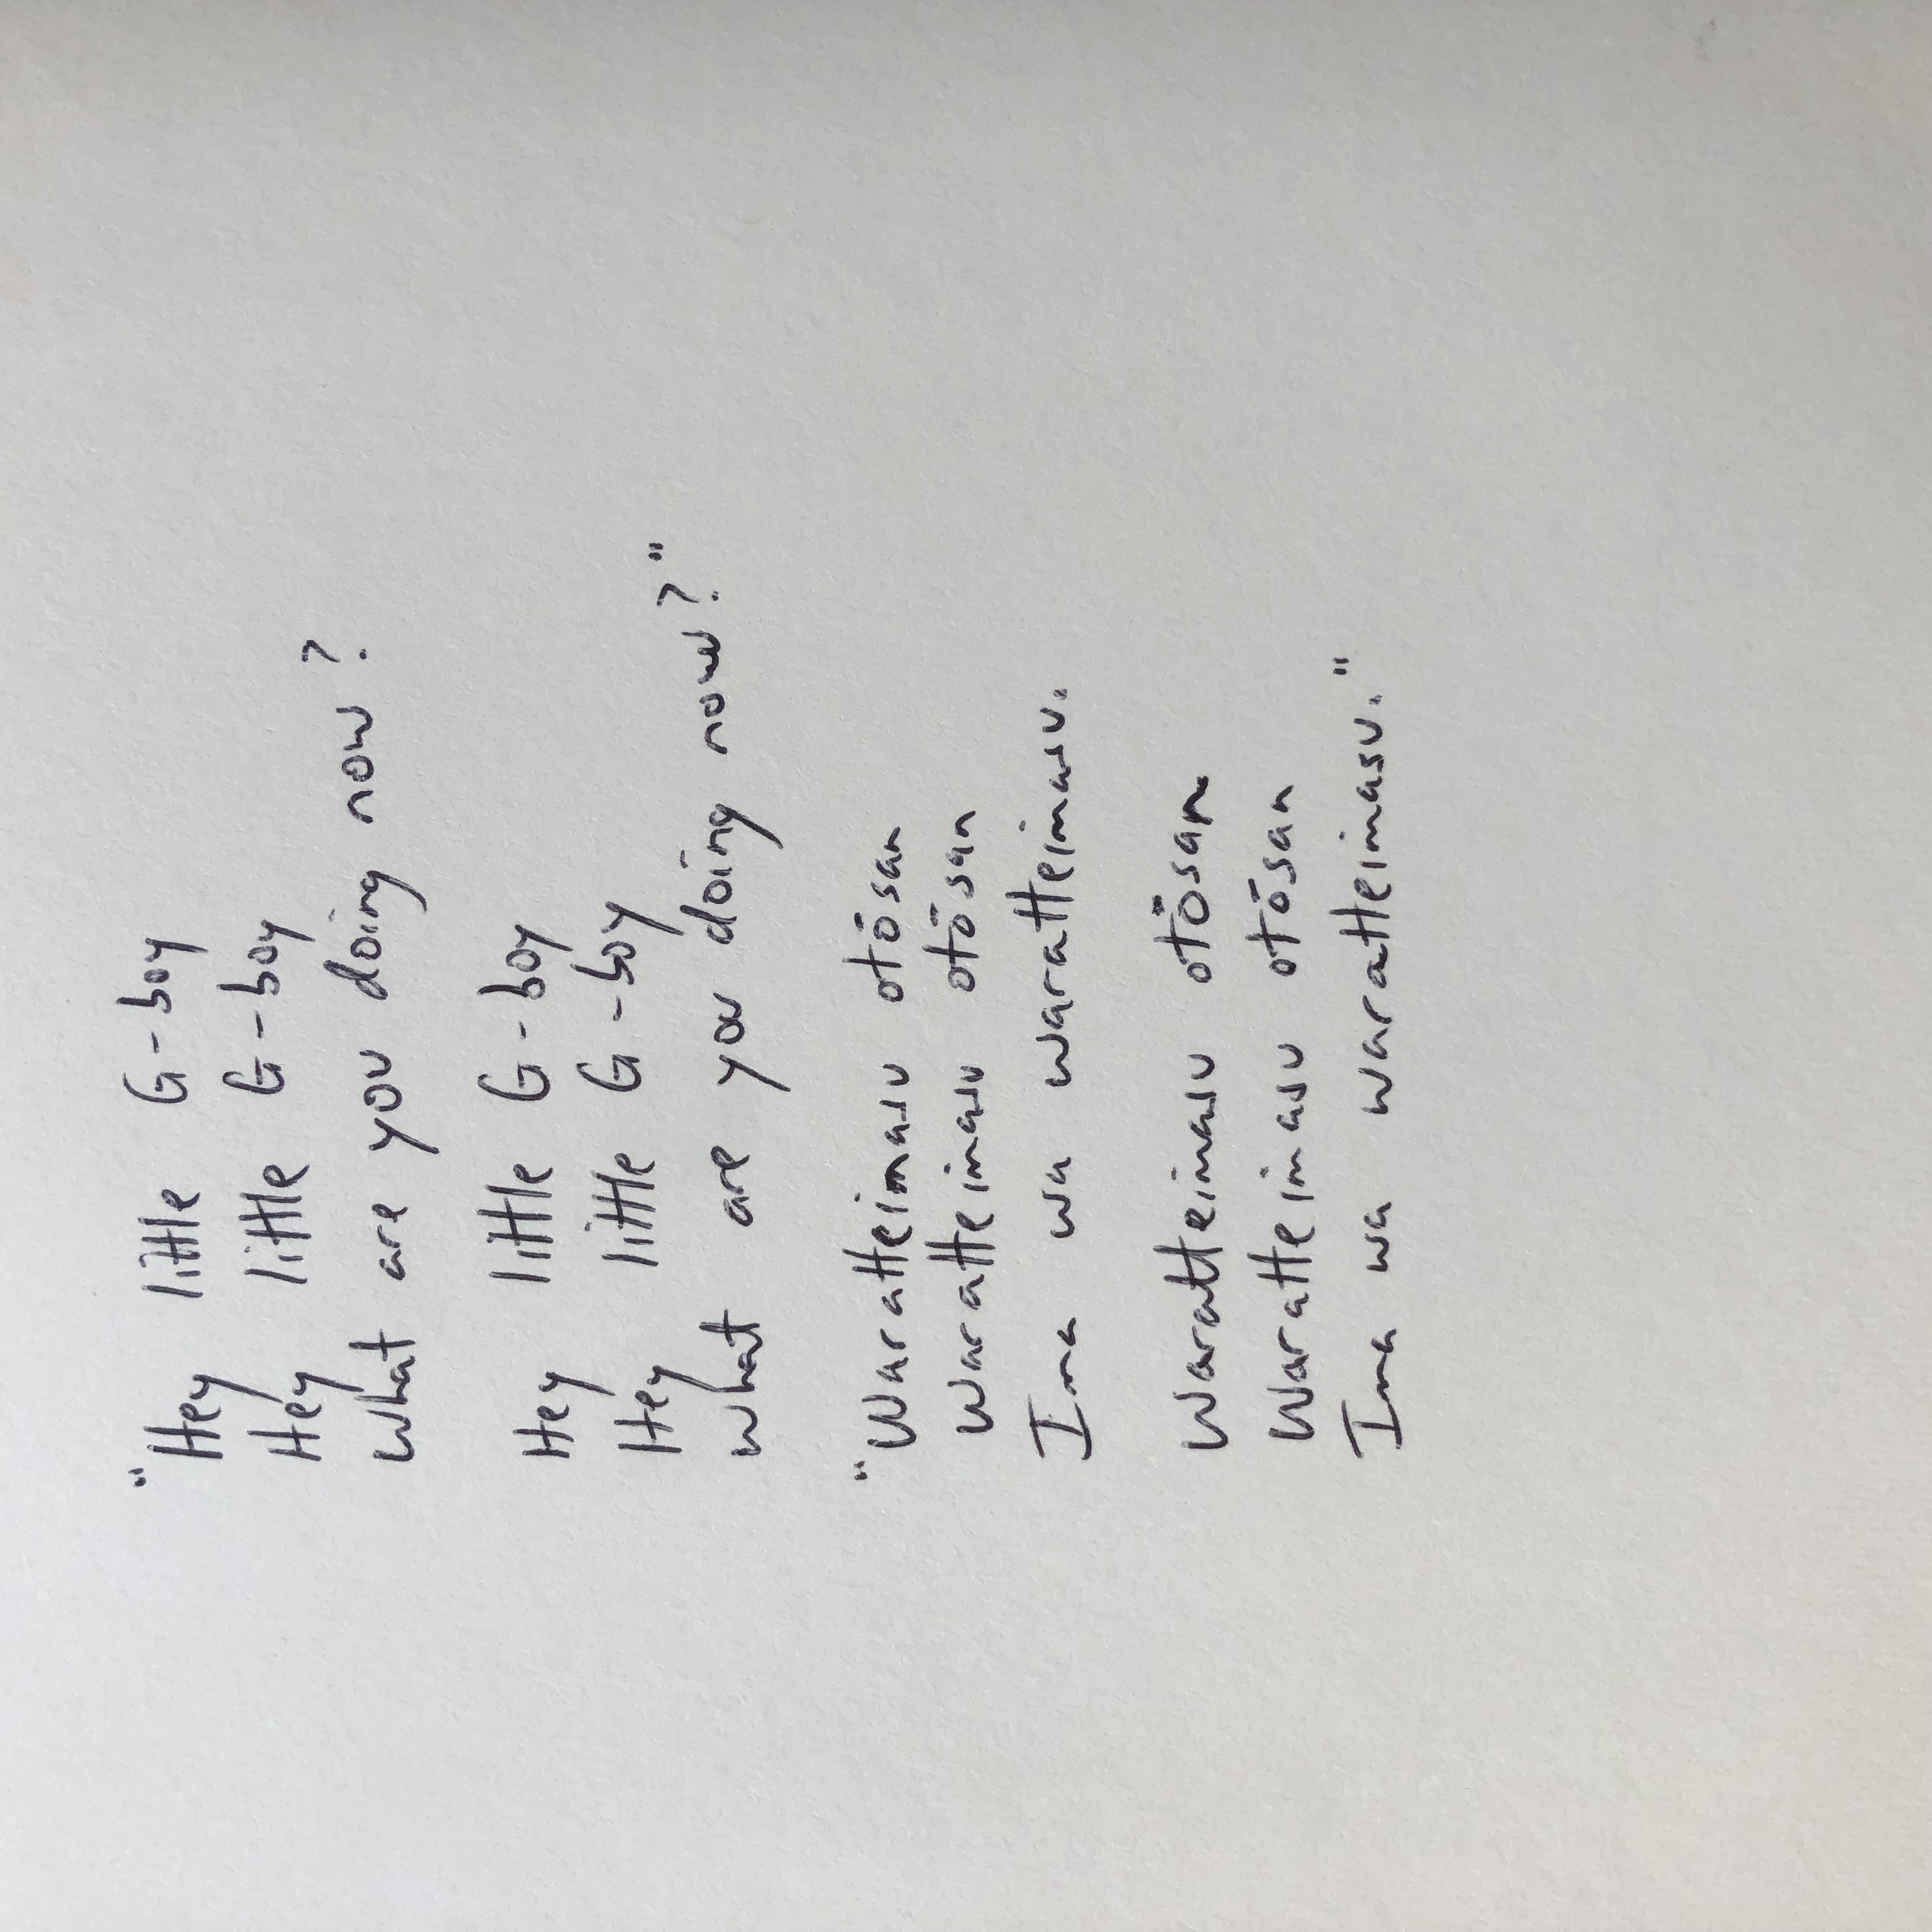 "Hey little G-boy
Hey little G-boy
What are you doing now?
Hey little G-boy
Hey little G-boy
What are you doing now?"
"Waratteimasu otōsan
Waratteimasu otōsan
Ima wa waratteimasu.
Waratteimasu otōsan
Waratteimasu otōsan
Ima wa waratteimasu."